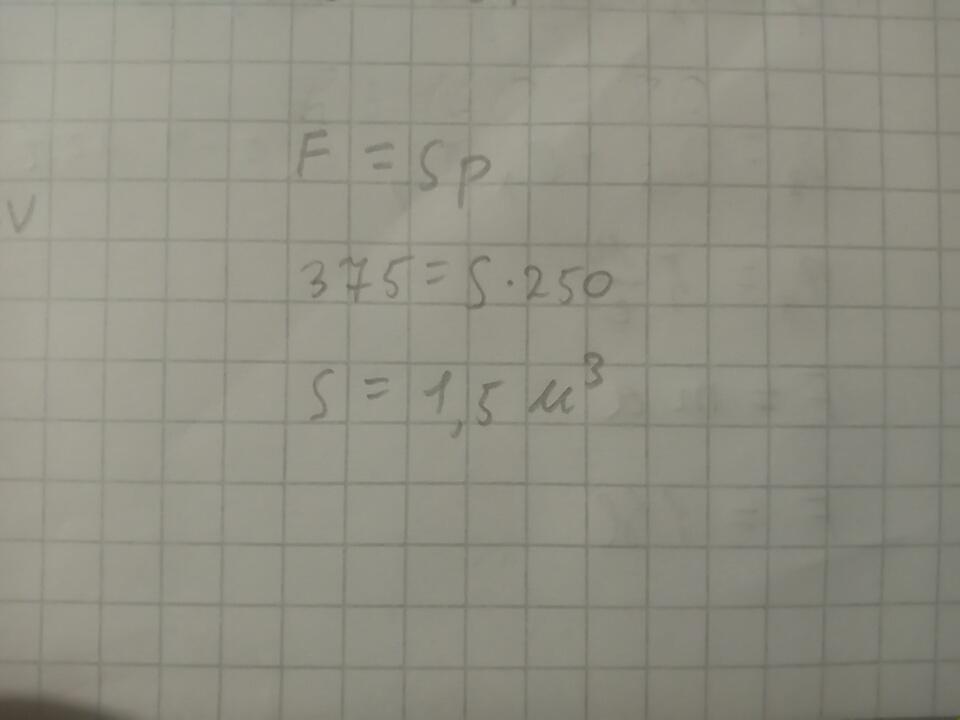 F = Sp
V
375 = S · 250
S = 1,5 м³